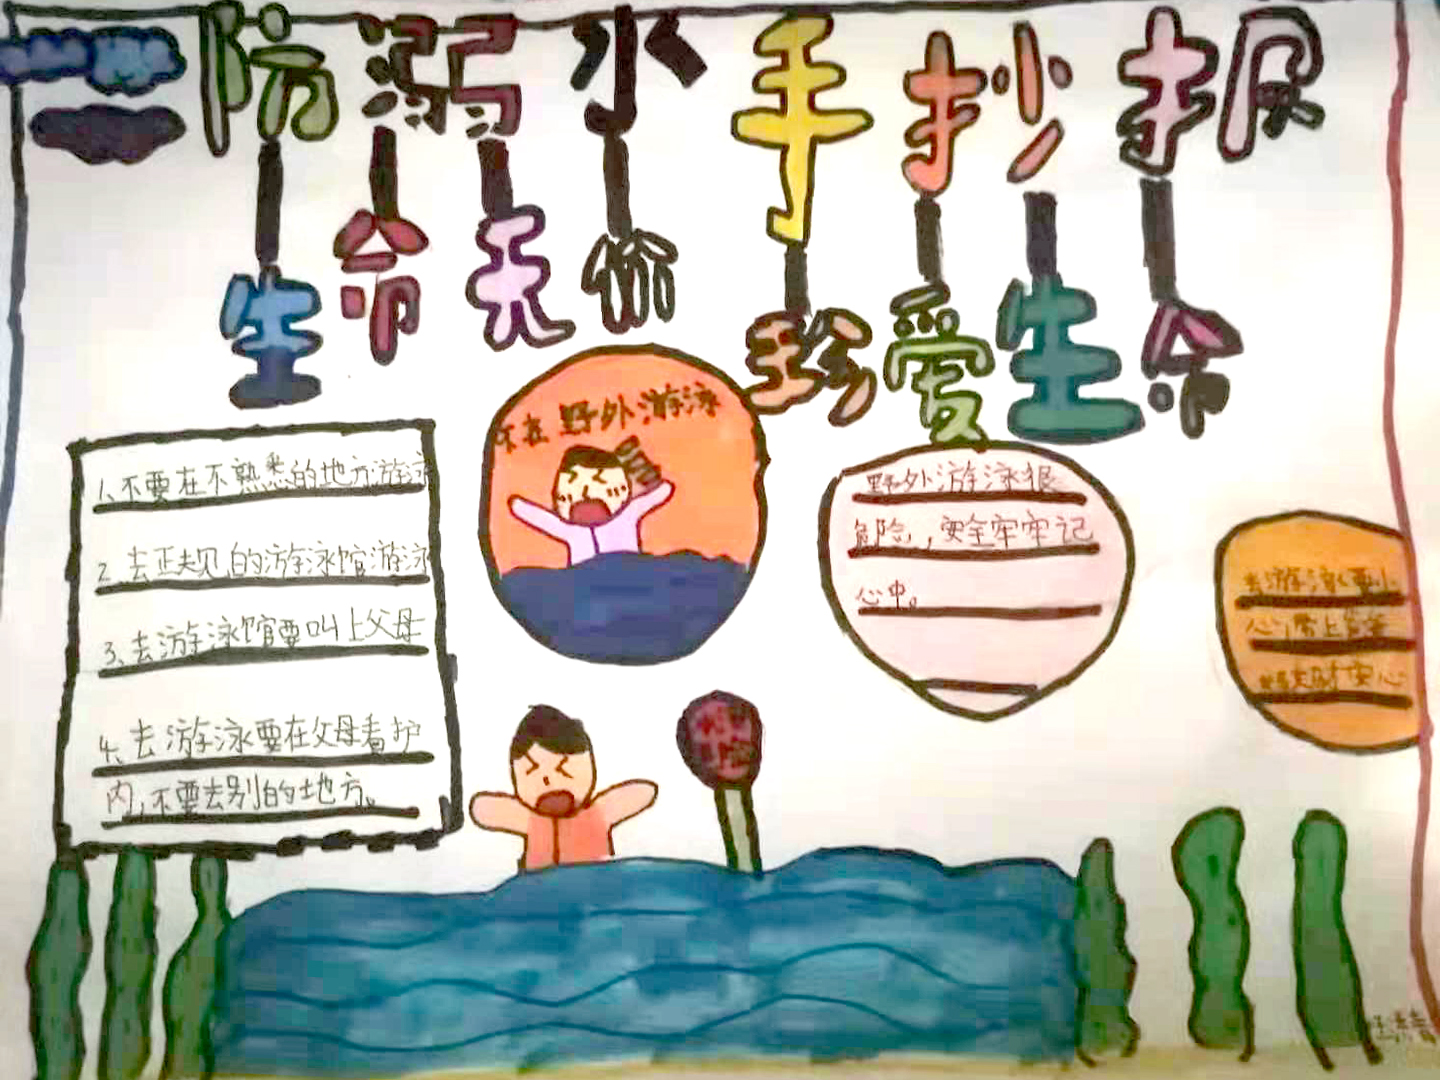 防溺水手抄报
生命无价 珍爱生命
不在野外游泳
1、不要在不熟悉的地方游泳
2、去正规的游泳馆游泳
3、去游泳馆要叫上父母
4、去游泳要在父母看护
内,不要去别的地方。
野外游泳很
危险,安全牢牢记
心中。
去游泳要小
心,带上